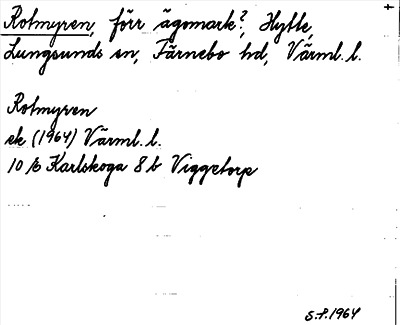 Rotmyren, förr ägomark?, Hytte,
Lungsunds sn, Färnebo hd, Värml. l.
Rotmyren
ek (1964) Värml. l.
10 E Karlskoga 8 b Viggetorp
S.P. 1964